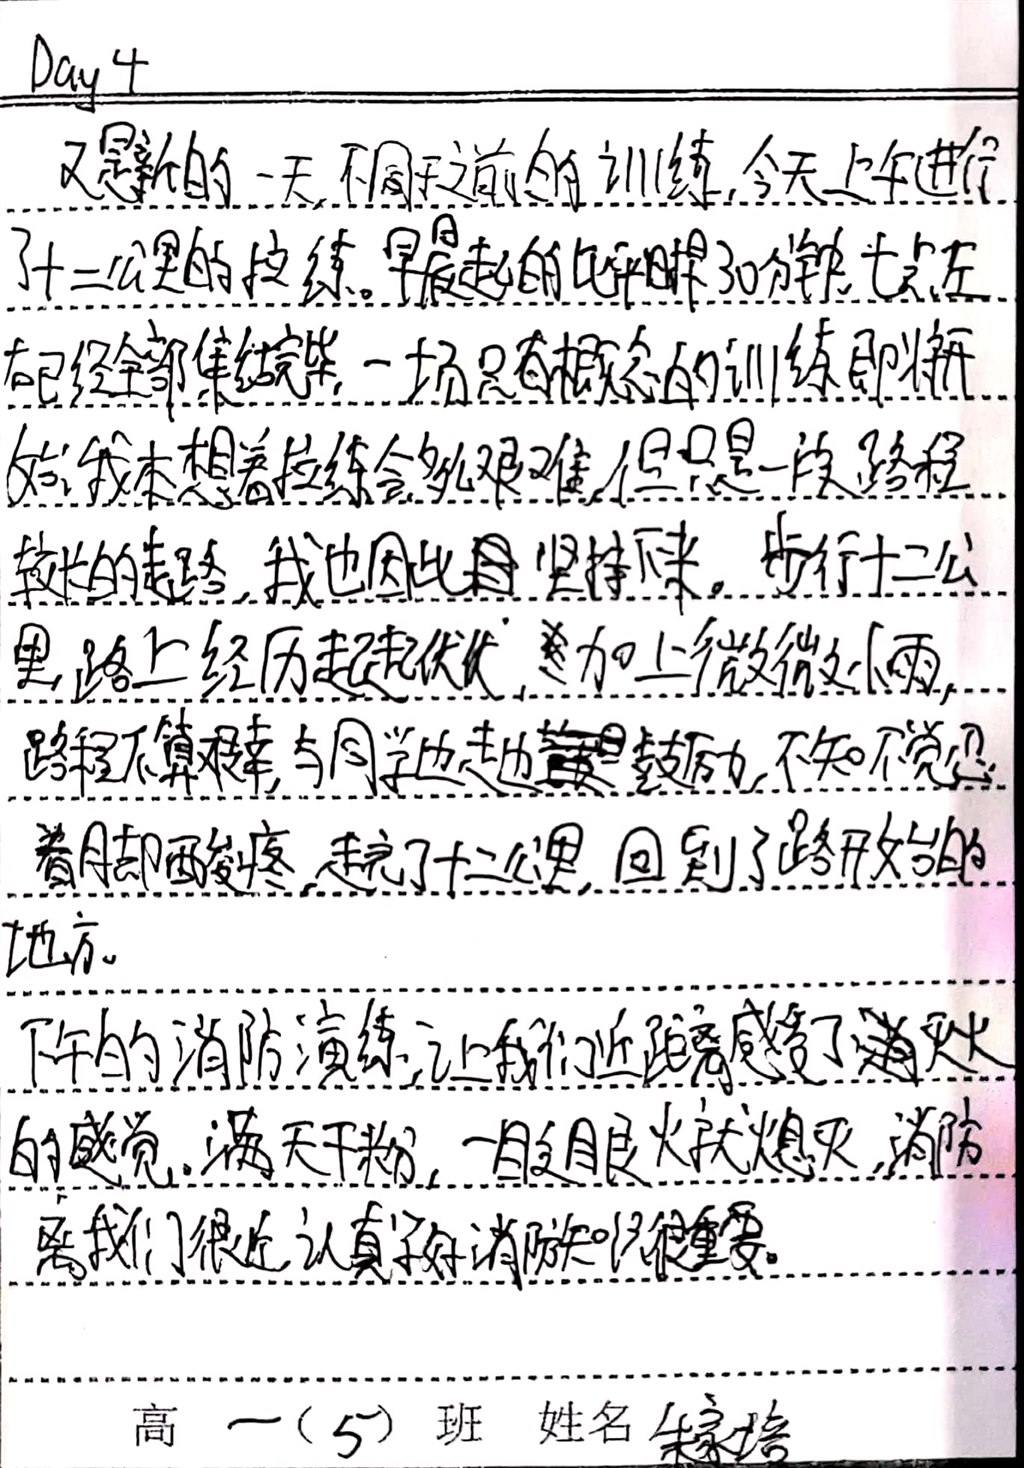 Day 4
又是新的一天,不同于之前的训练,今天上午进行
了十二公里的拉练。早晨起的比平时早30分钟,七点左
右已经全部集结完毕,一场只有概念的训练即将开
始,我本想着拉练会多么艰难,但只是一段路程
较长的走路,我也因此坚持下来。步行十二公
里,路上经历起起伏伏,加上微微小雨,
路程不算艰辛,与同学边走边鼓励,不知不觉忍
着脚酸疼,走完了十二公里,回到了路开始的
地方。
下午的消防演练,让我们近距离感受了灭火
的感觉。满天干粉,一眨眼火就熄灭,消防
离我们很近,认真学好消防知识很重要。
高一(5)班 姓名 朱家培